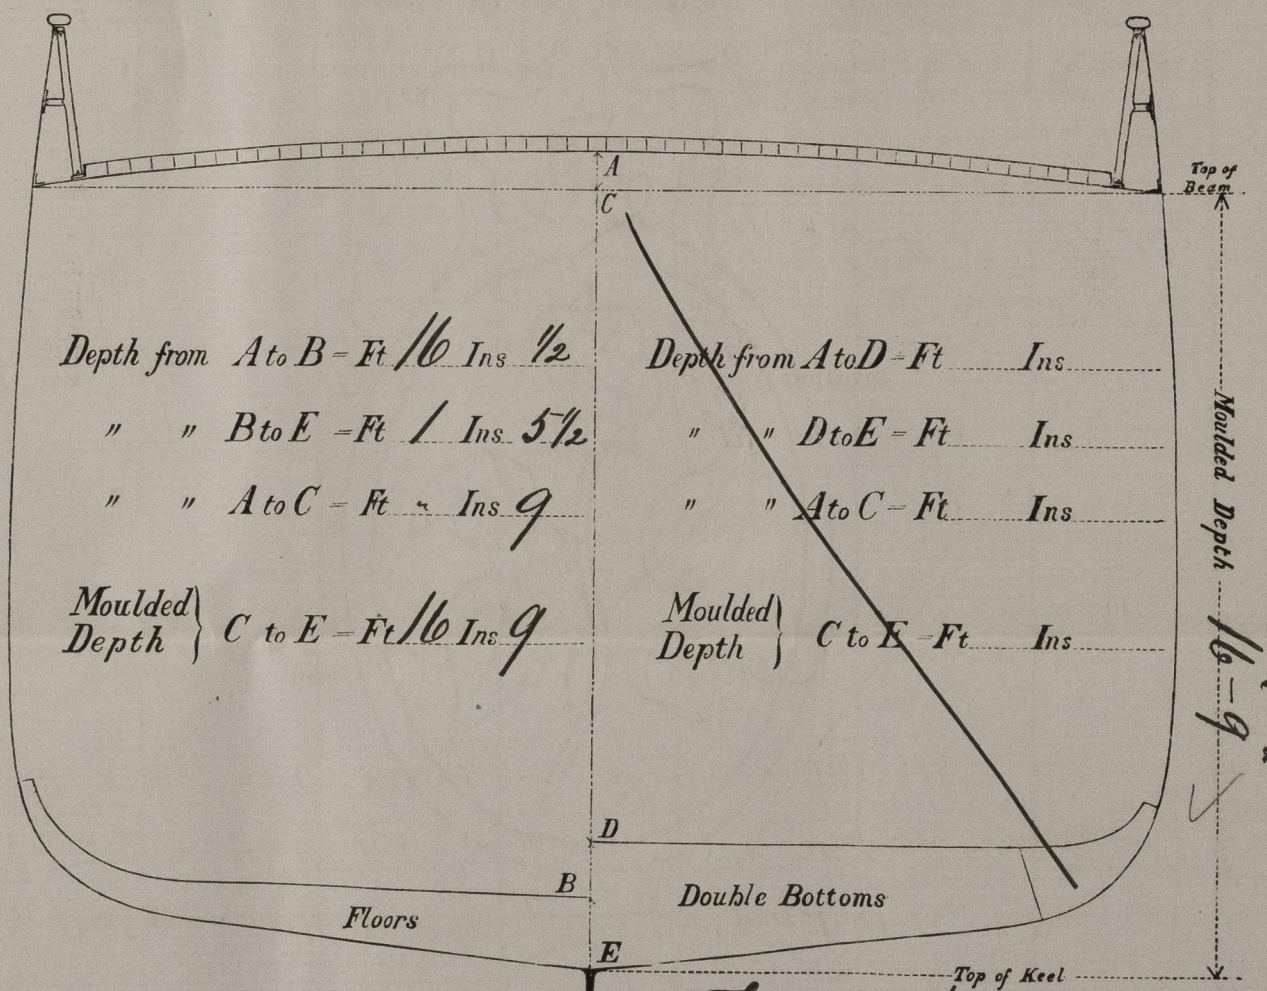 Top of
Beam
A
C
Depth from A to B = Ft 16 Ins ½
" " B to E = Ft 1 Ins 5½
" " A to C = Ft " Ins 9
Moulded
Depth } C to E = Ft 16 Ins 9
Depth from A to D = Ft Ins
" " D to E = Ft Ins
" " A to C = Ft Ins
Moulded
Depth } C to E = Ft Ins
Moulded Depth 16-9
D
B
Double Bottoms
Floors
E
Top of Keel